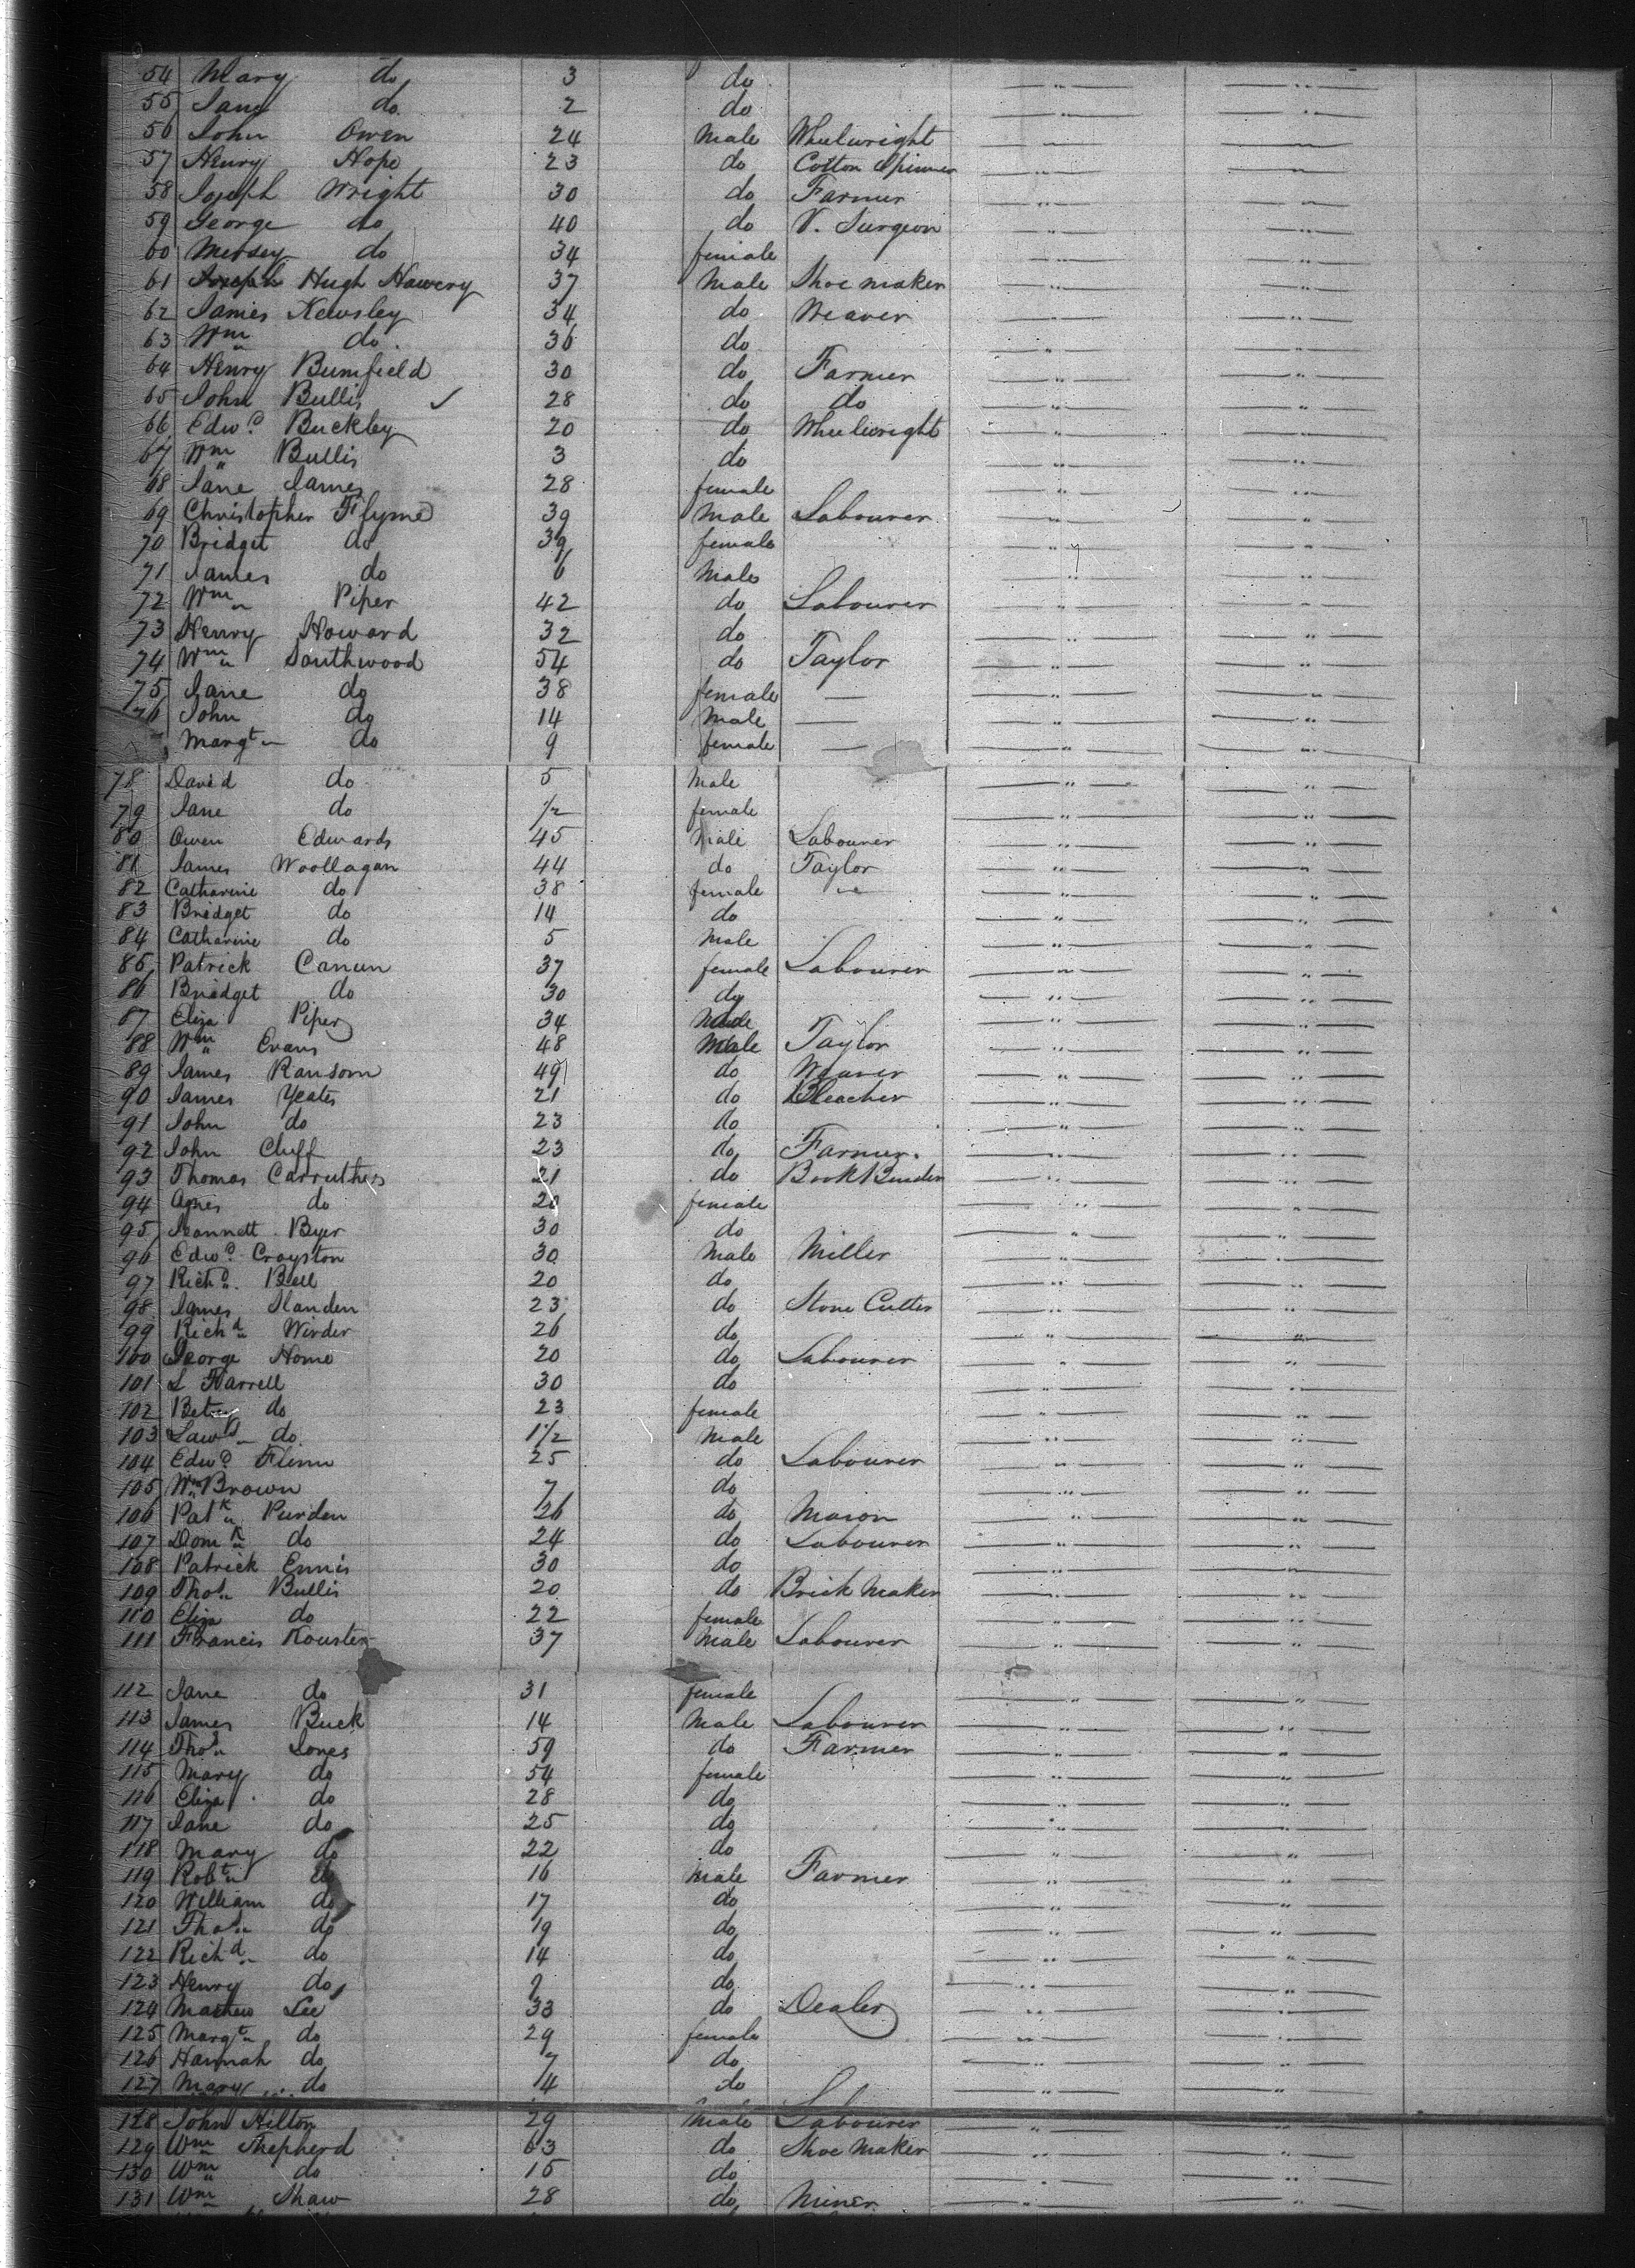 54 Mary do 3 do
55 Jane do 2 do
56 John Owen 24 Male Wheelwright
57 Henry Hope 23 do Cotton Spinner
58 Joseph Wright 30 do Farmer
59 George do 40 do V. Surgeon
60 do 34 female
61 Joseph Hugh 37 Male Shoe maker
62 James Kewsley 34 do Weaver
63 Wm do. 36 do
64 Henry Bumfield 30 do Farmer
65 John Bullis ✓ 28 do do
66 Edwd Buckley 20 do Wheelwright
67 Wm Bullis 3 do
68 Jane James 28 female
69 Christopher Flyme 39 Male Labourer
70 Bridget do 39 female
71 James do 6 Male
72 Wm Piper 42 do Labourer
73 Henry Howard 32 do
74 Wm Southwood 54 do Taylor
75 Jane do 38 female —
76 John do 14 Male —
Margt do 9 female —
78 David do 5 Male
79 Jane do 1/2 female
80 Owen Edwards 45 Male Labourer
81 James Woollagan 44 do Taylor
82 Catharine do 38 female
83 Bridget do 14 do
84 Catharine do 5 Male
85 Patrick Canun 37 female Labourer
86 Bridget do 30 do
87 Eliza Piper 34
88 Wm Evans 48 Male Taylor
89 James Ransom 49 do Weaver
90 James Yeates 21 do Bleacher
91 John do 23 do
92 John Cluff 23 do Farmer.
93 Thomas Carruthers 21 do Book Binder
94 Agnes do 20 female
95 Jeannett Byer 30 do
96 Edwd Croyston 30 Male Miller
97 Richd. Bell 20 do
98 James Handen 23 do Stone Cutter
99 Richd Winder 26 do
100 George Home 20 do Labourer
101 L Farrell 30 do
102 Betsy do 23 female
103 Lawd do. 1 1/2 Male
104 Edwd Flinn 25 do Labourer
105 Wm Brown 7 do
106 Patk Purden 26 do Mason
107 Domk do 24 do Labourer
108 Patrick Ennis 30 do
109 Thos Bullis 20 do Brick Maker
110 Eliza do 22 female
111 Francis Kouster 37 Male Labourer
112 Jane do 31 female
113 James Buck 14 Male Labourer
114 Thos Jones 59 do Farmer
115 Mary do 54 female
116 Eliza do 28 do
117 Jane do 25 do
118 Mary do 22 do
119 Robt do 16 Male Farmer
120 William do 17 do
121 Thos do 19 do
122 Richd do 14 do
123 Henry do 9 do
124 Mathew Lee 33 do Dealer
125 Margt do 29 female
126 Hannah do 7 do
127 Mary do 4 do
128 John Hilton 29 Male Labourer
129 Wm Shepherd 63 do Shoe Maker
130 Wm do 15 do
131 Wm Shaw 28 do Miner